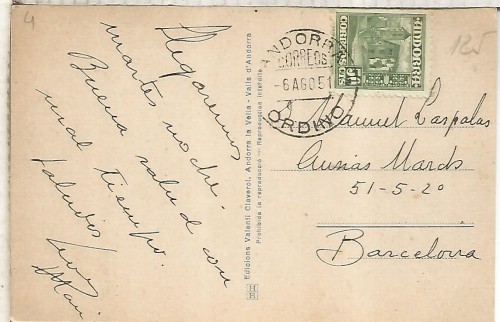 4
Llegaremos
martes noche.
Buena salud con
mal tiempo.
Saludos
Edicions Valentí Claverol, Andorra la Vella - Valls d'Andorra
Prohibida la reproducció - Reproduction interdite
ANDORRA
CORREOS
-6 AGO 51
ORDINO
ANDORRA
CORREOS
125
Sr Manuel Caspolas
Ausias March
51-5-2º
Barcelona